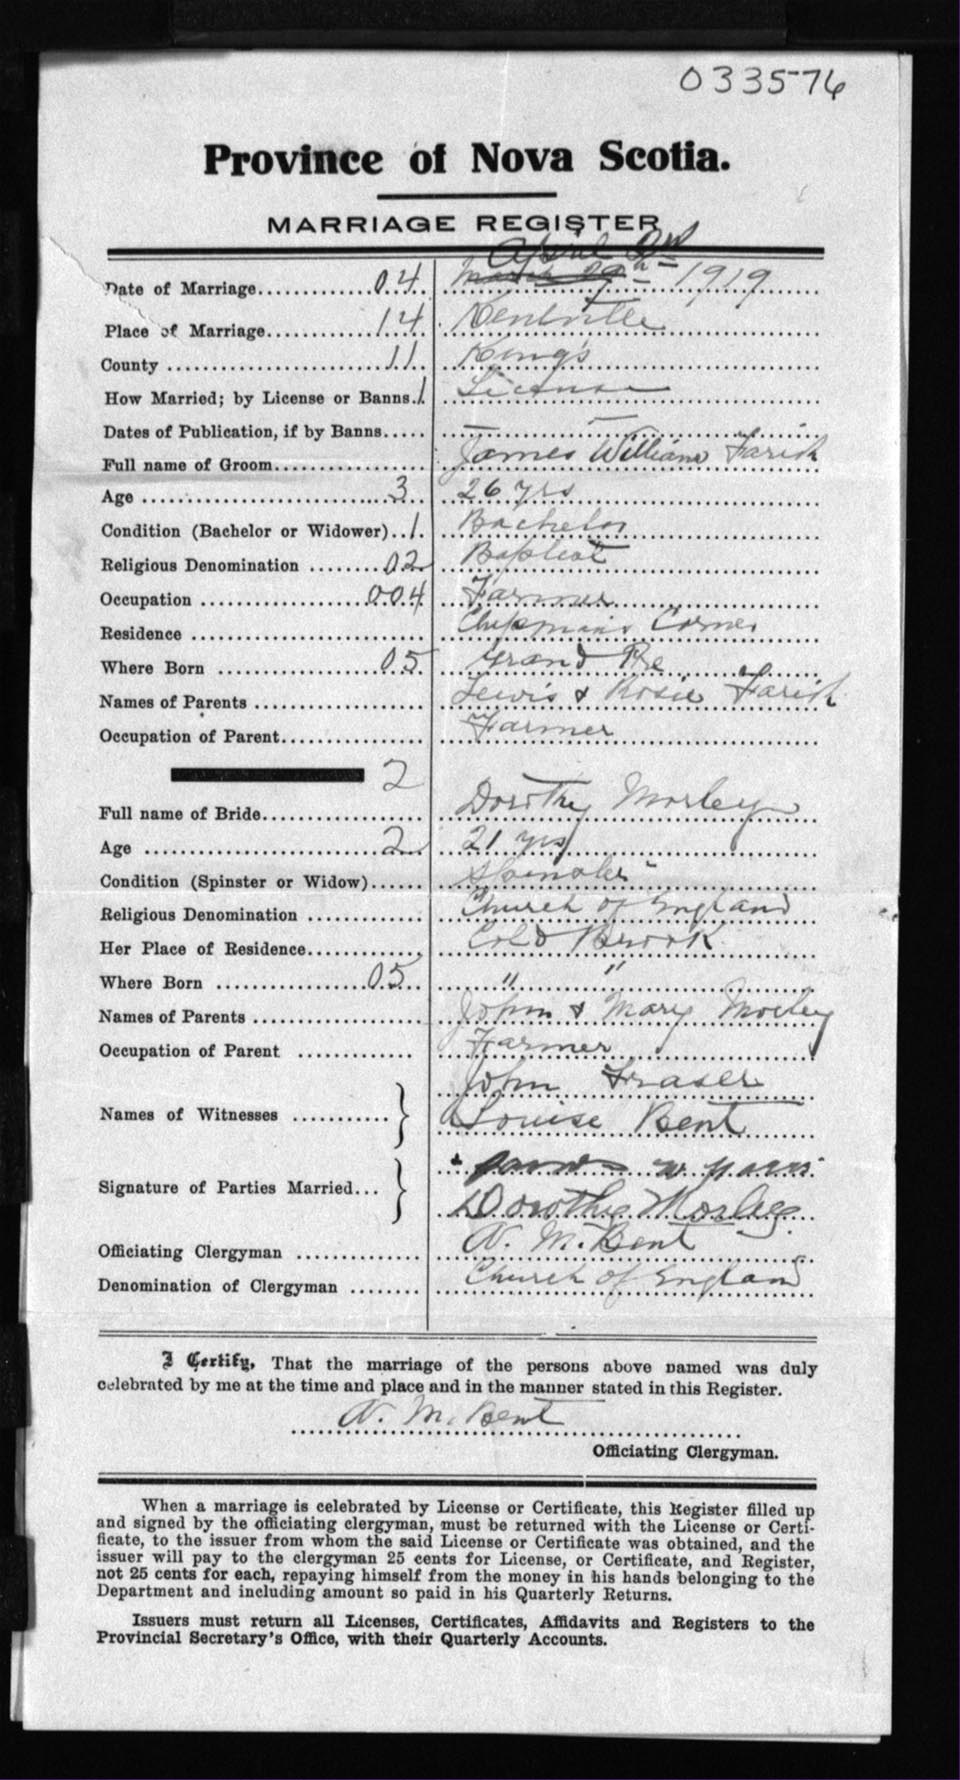 033576
Province of Nova Scotia.
MARRIAGE REGISTER
April 2nd
Date of Marriage 04 March 29th 1919
Place of Marriage 14 Kentville
County 11 King's
How Married; by License or Banns 1 License
Dates of Publication, if by Banns — —
Full name of Groom James William Farish
Age 3 26 yrs
Condition (Bachelor or Widower) 1 Bachelor
Religious Denomination 02 Baptist
Occupation 004 Farmer
Residence Chipman's Corner
Where Born 05 Grand Pre
Names of Parents Lewis & Rosie Farish
Occupation of Parent Farmer
2
Full name of Bride Dorothy Morley
Age 2 21 yrs
Condition (Spinster or Widow) Spinster
Religious Denomination Church of England
Her Place of Residence Cold Brook
Where Born 05 " "
Names of Parents John & Mary Morley
Occupation of Parent Farmer
John Fraser
Names of Witnesses Louise Bent
Signature of Parties Married
Dorothy Morley
Officiating Clergyman N. M. Bent
Denomination of Clergyman Church of England
I Certify, That the marriage of the persons above named was duly
celebrated by me at the time and place and in the manner stated in this Register.
N. M. Bent
Officiating Clergyman.
When a marriage is celebrated by License or Certificate, this Register filled up
and signed by the officiating clergyman, must be returned with the License or Certi-
ficate, to the issuer from whom the said License or Certificate was obtained, and the
issuer will pay to the clergyman 25 cents for License, or Certificate, and Register,
not 25 cents for each, repaying himself from the money in his hands belonging to the
Department and including amount so paid in his Quarterly Returns.
Issuers must return all Licenses, Certificates, Affidavits and Registers to the
Provincial Secretary's Office, with their Quarterly Accounts.